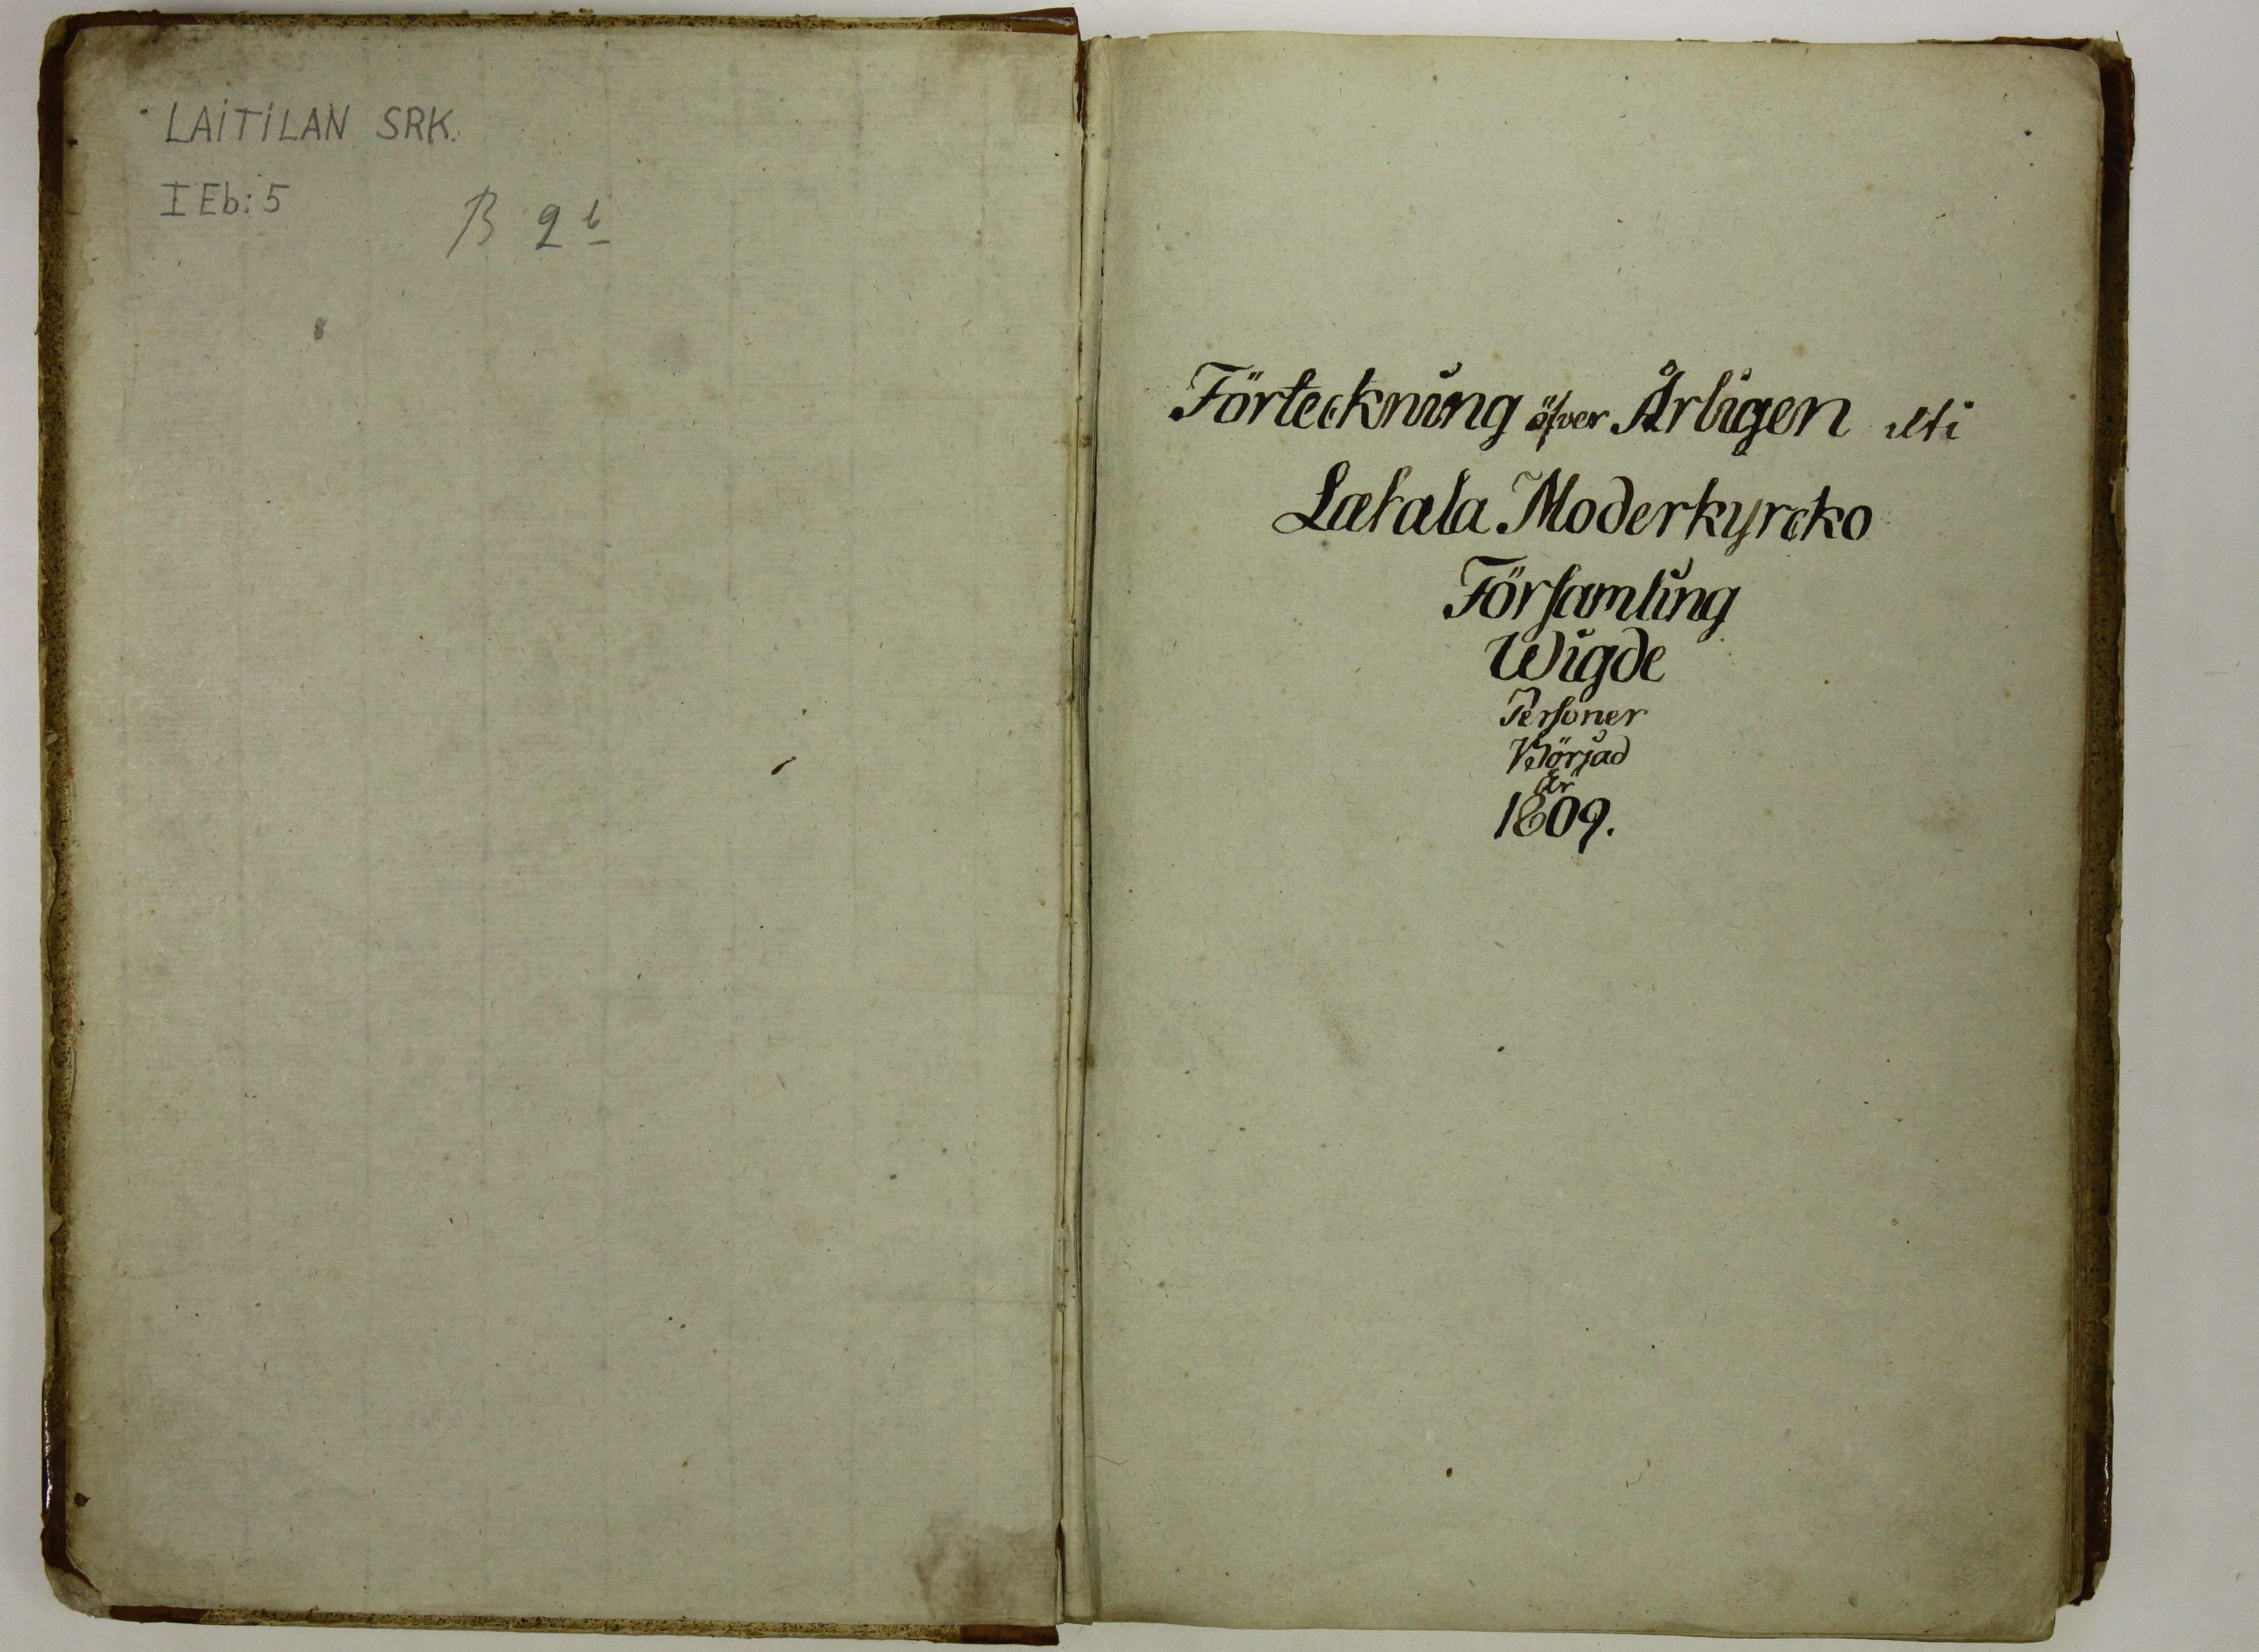 LAITILAN SRK.
I Eb: 5
B 2 b
Förteckning öfver Årligen uti
Letala Moderkyrcko
Församling
Wigde
Personer
Börjad
År
1809.